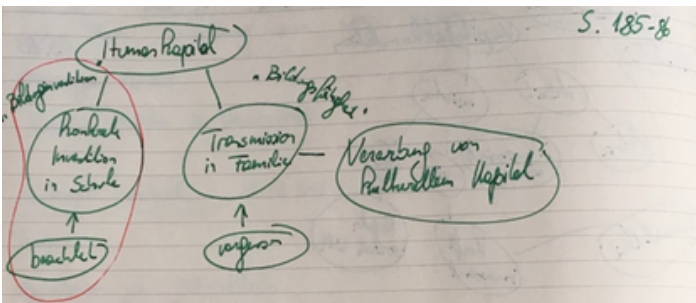 S. 185-86
Humankapital
"Bildungsinvestition"
"Bildungsfähigkeit"
Investition
in Schule
Transmission
in Familie
Vererbung von
kulturellem Kapital
beachtet
vergessen